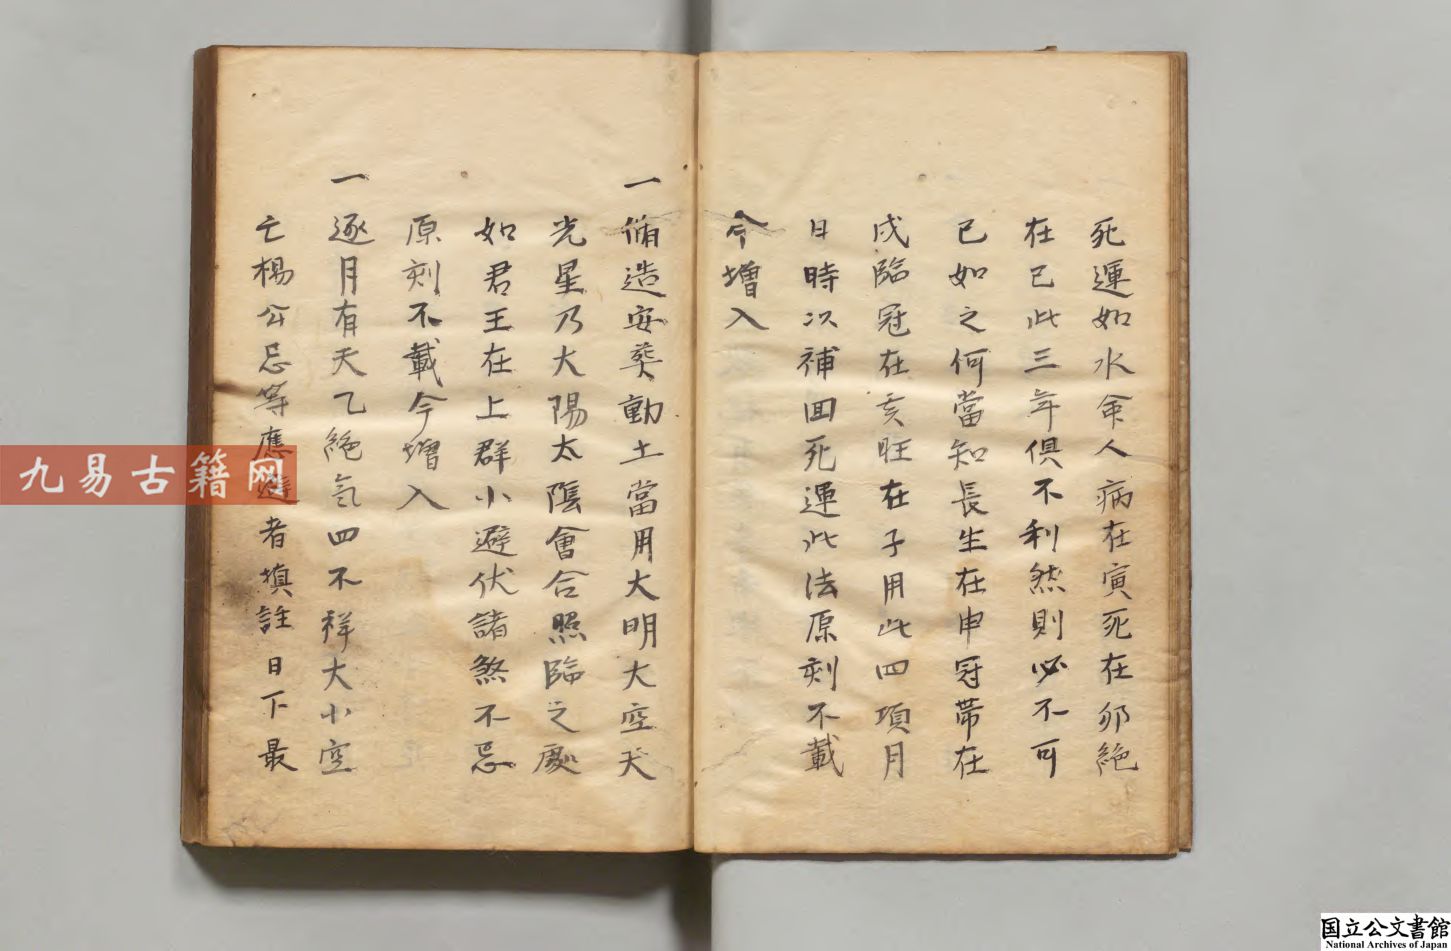 死運如水命人病在寅死在卯絕
在巳此三年俱不利然則必不可
已如之何當知長生在申冠帶在
戌臨冠在亥旺在子用此四項月
日時以補囬死運此法原刻不載
今增入
一脩造安葬動土當用大明大空天
光星乃大陽太陰會合照臨之處
如君王在上群小避伏諸煞不忌
原刻不載今增入
一逐月有天乙絕氣四不祥大小空
亡楊公忌等應避者填註日下最
九易古籍网
国立公文書館
National Archives of Japan